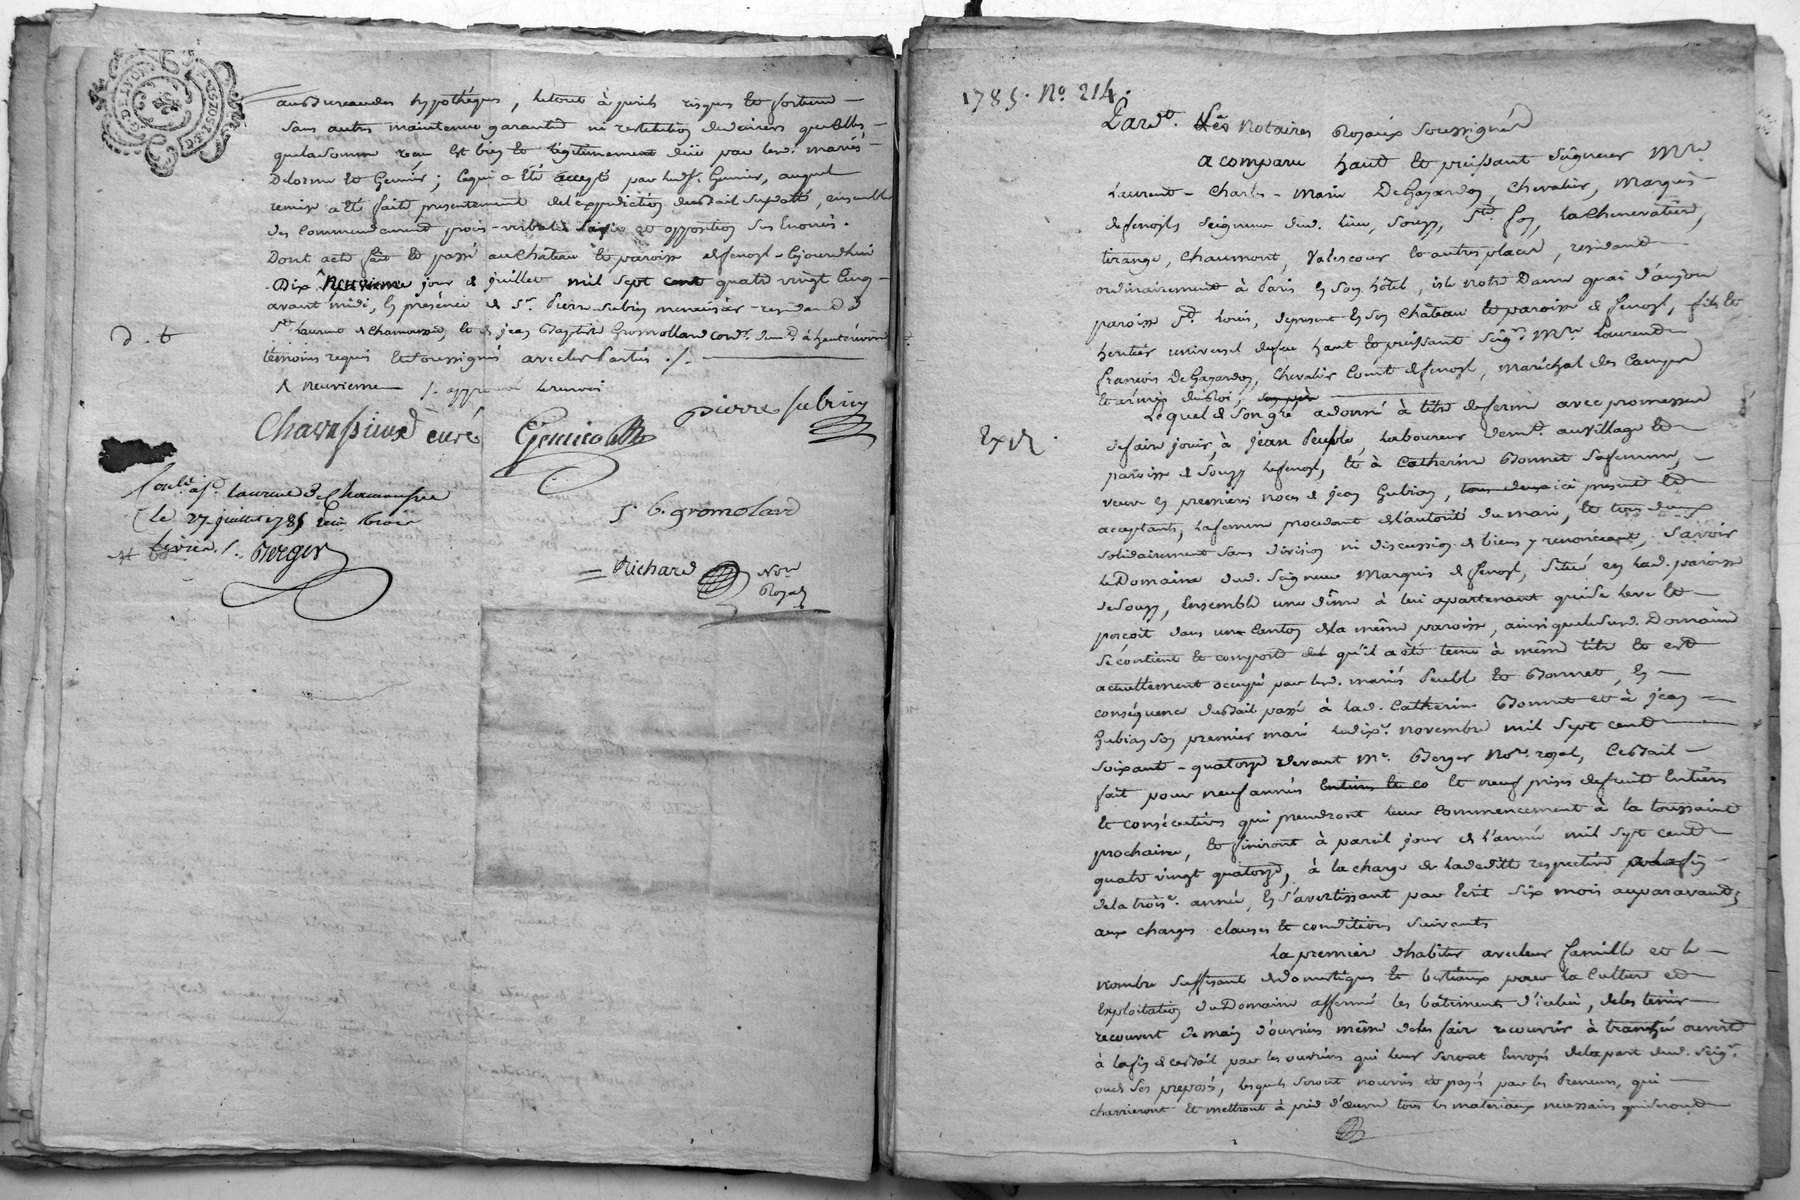 G. DE LYON
au bureau des hypothéques, le tout à perils risques et fortune
sans autres maintenue garantie ni restitution de deniers quelles
que la somme reçu est bien et legitimement düe par lesd. mariés
Delorme et Genier ; ce qui a été accepté par led. Sr. Genier, auquel
remise a été faite presentement de l'expedition du bail susdatté, ensemble
des commandement procès-verbal saisie et opposition sus enoncés.
Dont acte fait et passé au château et paroisse de fenoyl cejourdhui
Dix ^ neuvieme jour de juillet mil sept cent quatre vingt cinq
avant midi, en présence de Sr. Pierre subrin menuisier residant à
St. Laurent de Chamousset, et de jean Baptiste Gromolard cordr. demt. à hauterivoire
témoins requis et soussignés avec les parties ./.
^ neuvieme /. approuvé le renvoi
D. t
Chavassieux curé
pierre subrin
j. b. gromolard
Richard Nore. Royal
Conlé. à St. Laurent de Chamousset
le 27 juillet 1785 reçu trois
livres /. Berger
1785. No. 214.
Pardt. Les Notaires Royaux soussignés
a comparu haut et puissant seigneur Mre.
Laurent-Charles-Marie De Gayardon, Chevalier, Marquis
de fenoyl seigneur dud. lieu, Souzy, Ste. foy, la Chenevatiere,
tirange, Chaumont, Valescour et autres places, residant
ordinairement à Paris en son hôtel, isle notre Dame quai d'anjou
paroisse St. Louis, depresent en son château et paroisse de fenoyl, fils et
heritier universel de feu haut et puissant seigr. Mre. Laurent
françois De Gayardon, Chevalier Comte de fenoyl, maréchal des Camps
et armées du Roi, son père
Lequel de son gré a donné à titre de ferme avec promesse
de faire jouir, à jean Peuble, laboureur demt. au village et
paroisse de Souzy le fenoyl, et à Catherine Bonnet sa femme,
veuve en premieres noces de jean Gubian, tous deux ici present et
acceptants, la femme procedant de l'autorité du mari, et tous deux
solidairement sans division ni discussion de biens y renonceant, savoir
le Domaine dud. seigneur Marquis de fenoyl, situé en lad. paroisse
de Souzy, ensemble une dîme à lui apartenant qui se leve et
perçoit dans un canton de la même paroisse, ainsi que le susd. Domaine
se contient et comporte et qu'il a été tenu à même titre et est
actuellement occupé par lesd. mariés Peuble et Bonnet, en
conséquence du bail passé à lad. Catherine Bonnet et à jean
Gubian son premier mari le dixe. novembre mil sept cent
soixante-quatorze devant Me. Berger Nore. royal, Ce bail
fait pour neuf années entieres et co et neuf prises de fruit entieres
et consécutives qui prendront leur commencement à la toussaint
prochaine, et finiront à pareil jour de l'année mil sept cent
quatre vingt quatorze, à la charge de la dedite respective à la fin
de la troise. année, en s'avertissant par écrit six mois auparavant;
aux charges clauses et conditions suivantes
Exdt.
La premiere d'habiter avec leur famille et le
nombre suffisant de domestiques et bestiaux pour la culture et
exploitation du Domaine affermé les bâtiments d'icelui, de les tenir
recouvert de main d'ouvrier même de les faire recouvrir à tranchée ouverte
à la fin de ce bail par les ouvriers qui leur seront envoyés de la part dud. seigr.
ou de ses preposés, lesquels seront nourris et payés par les Preneurs, qui
charrieront et mettront à pied d'œuvre tous les materiaux necessaires qui seront